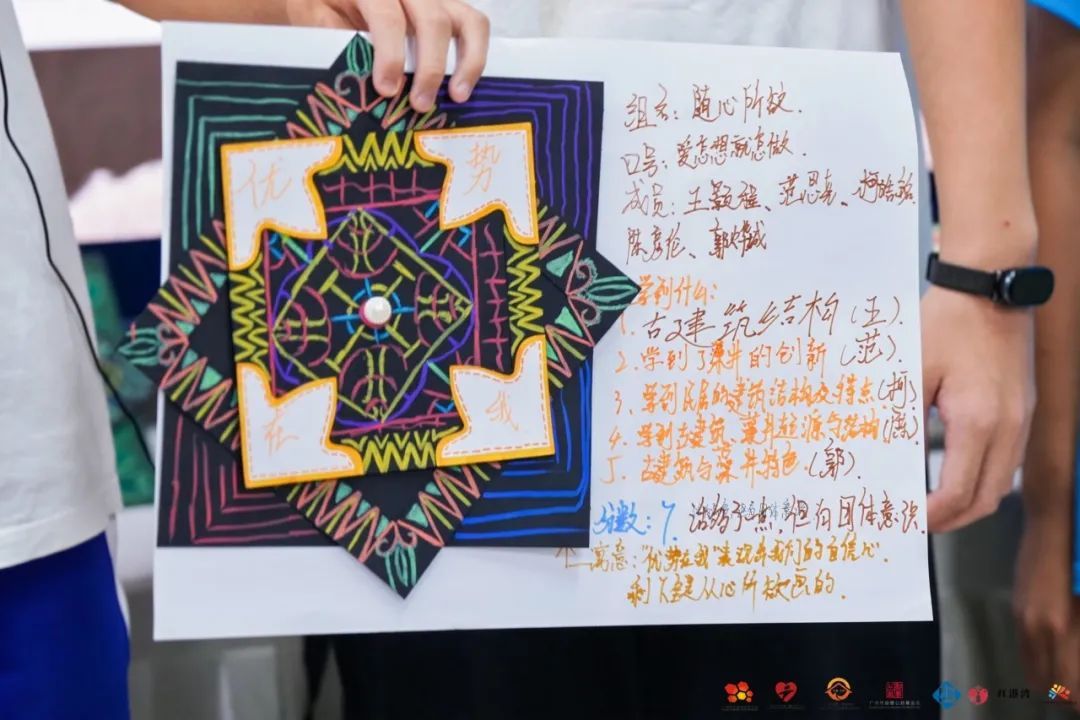 优 势
在 我
组名：随心所欲.
口号：爱怎想就怎做.
成员：王颢程、范思亮、柯皓铭
陈彦伦、郭烨城
学到什么：
1. 古建筑结构（王）.
2. 学到了藻井的创新（范）.
3、学到民居的建筑结构及特点（柯）
4、学到古建筑、藻井起源与结构（陈）.
5、古建筑与藻井特色.（郭）.
分数：7 但有团体意识.
寓意："优势在我"表现我们的自信心.
剩下全是从心所欲画的.